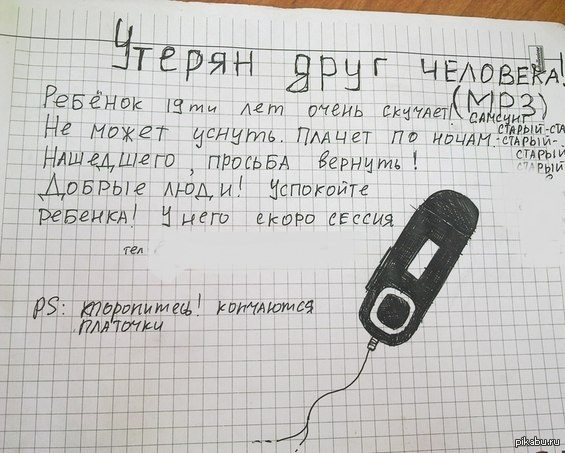 Утерян друг человека!
(MP3)
Ребёнок 19ти лет очень скучает! самсунг
Не может уснуть. Плачет по ночам. старый-ста
-старый-
Нашедшего, просьба вернуть! старый
Добрые люди! Успокойте старый
ребенка! У него скоро сессия
тел
PS: поторопитесь! кончаются
платочки
pikabu.ru